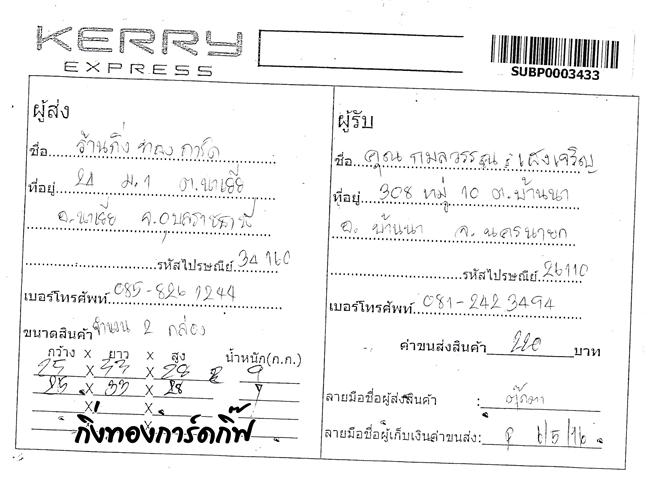 KERRY
EXPRESS
SUBP0003433
ผู้ส่ง
ชื่อ ร้านกิ่งทองการ์ด
ที่อยู่ 21 ม.1 ต.นาเยีย
อ.นาเยีย จ.อุบลราชธานี
รหัสไปรษณีย์ 34160
เบอร์โทรศัพท์ 085-826 1244
ขนาดสินค้า จำนวน 2 กล่อง
กว้าง x ยาว x สูง น้ำหนัก(ก.ก.)
25 x 33 x 28 9
25 x 33 x 28
x x
x x
กิ่งทองการ์ดกิ๊ฟ
ผู้รับ
ชื่อ คุณ กมลวรรณ
ที่อยู่ 308 หมู่ 10 ต.บ้านนา
อ. บ้านนา จ. นครนายก
รหัสไปรษณีย์ 26110
เบอร์โทรศัพท์ 081-242 3494
ค่าขนส่งสินค้า 220 บาท
ลายมือชื่อผู้ส่งสินค้า :
ลายมือชื่อผู้เก็บเงินค่าขนส่ง: 6/5/16